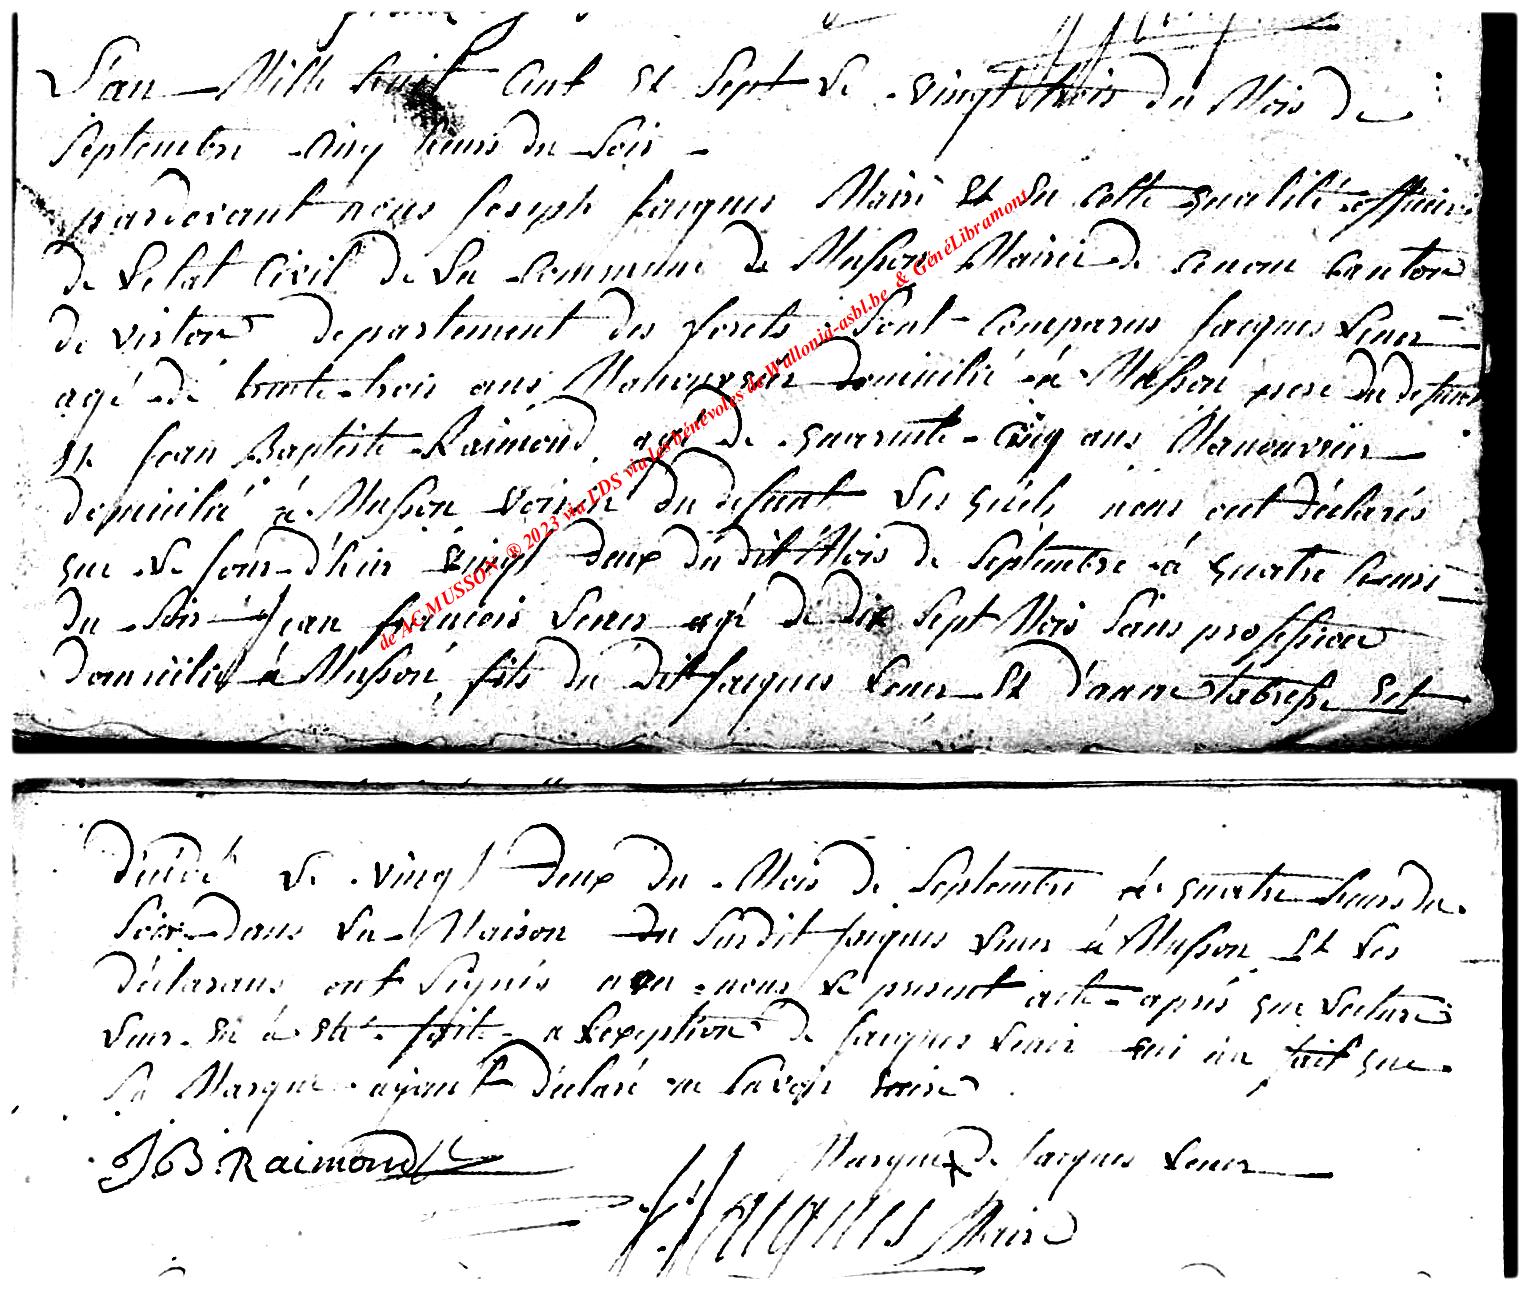 L'an Mille huit Cent Et Sept Le vingt trois du Mois de
Septembre Cinq heures du Soir
pardevant nous Joseph Jacques Maire Et En Cette qualité officier
de L'Etat Civil de La Commune de Musson Mairie de Canton
de virton departement des forets Sont Comparus Jacques
agé de trente trois ans Manouvrier domicilié à Musson pere du defunt
Et Jean Baptiste Raimond agé de quarente Cinq ans Manouvrier
domicilié à Musson voisin du defunt Les quels nous ont déclarés
que Le Jour d'hier vingt deux du dit Mois de Septembre à quatre heures
du Soir Jean francois agé de dix Sept Mois Sans profession
domicilié à Musson fils du dit Jacques Et d'anne Est
décédé Le vingt deux du Mois de Septembre à quatre heures du
Soir dans La Maison du Susdit Jacques à Musson Et Les
déclarans ont Signés nous Le present acte après que Lecture
Leur En à Eté faite a L'exeption de Jacques qui fait que
Sa Marque ayant déclaré ne Savoir
JB Raimond
Marque de Jacques
JJacques Maire
de AC MUSSON ® 2023 via LDS via les bénévoles de Wallonia-asbl.be & GénéLibramont